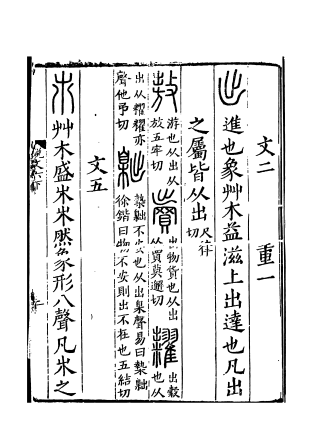 文二　重一
出 進也象艸木益滋上出達也凡出
之屬皆从出尺律切
敖 游也从出从放五牢切 賣 出物貨也从出从買莫邂切 糶 出穀也从
出从糶糶亦聲他弔切 𡴭 槷𡴭不安也从出臬聲易曰槷𡴭徐鍇曰物不安則出不在也五結切
文五
𣎵 艸木盛𣎵𣎵然象形八聲凡𣎵之
說文六下